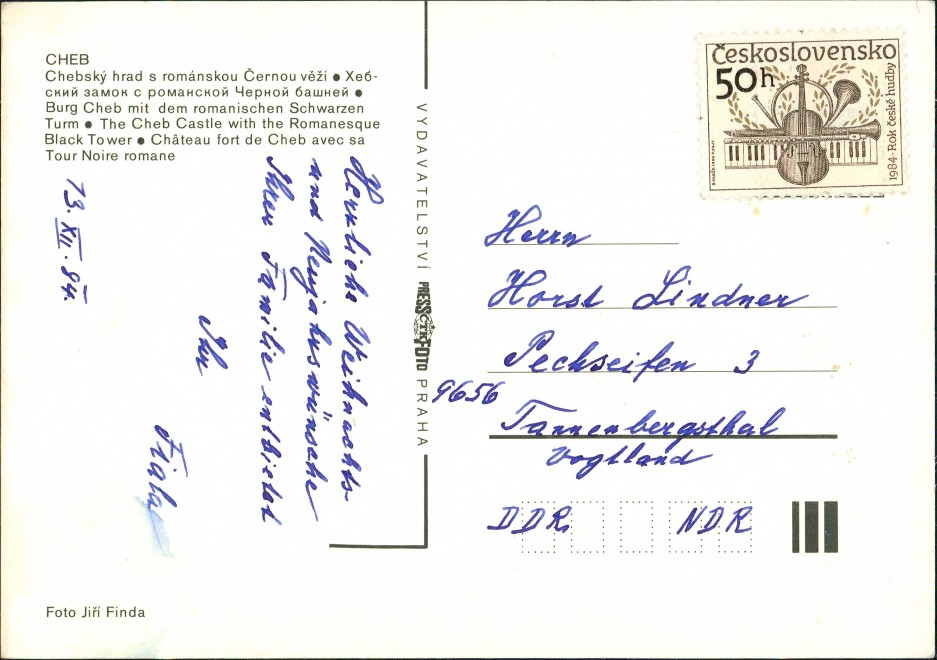 CHEB
Chebský hrad s románskou Černou věží ● Хеб-
ский замок с романской Черной башней ●
Burg Cheb mit dem romanischen Schwarzen
Turm ● The Cheb Castle with the Romanesque
Black Tower ● Château fort de Cheb avec sa
Tour Noire romane
13. XII. 84.
Herzliche Weihnachts-
und Neujahrswünsche
Ihrer Familie entbietet
Ihr
Fiala
Foto Jiří Finda
VYDAVATELSTVÍ PRESSFOTO PRAHA
ČTK
Československo
50h
1984 · Rok české hudby
Herrn
Horst Lindner
Pechseifen 3
9656
Tannenbergsthal
Vogtland
DDR NDR